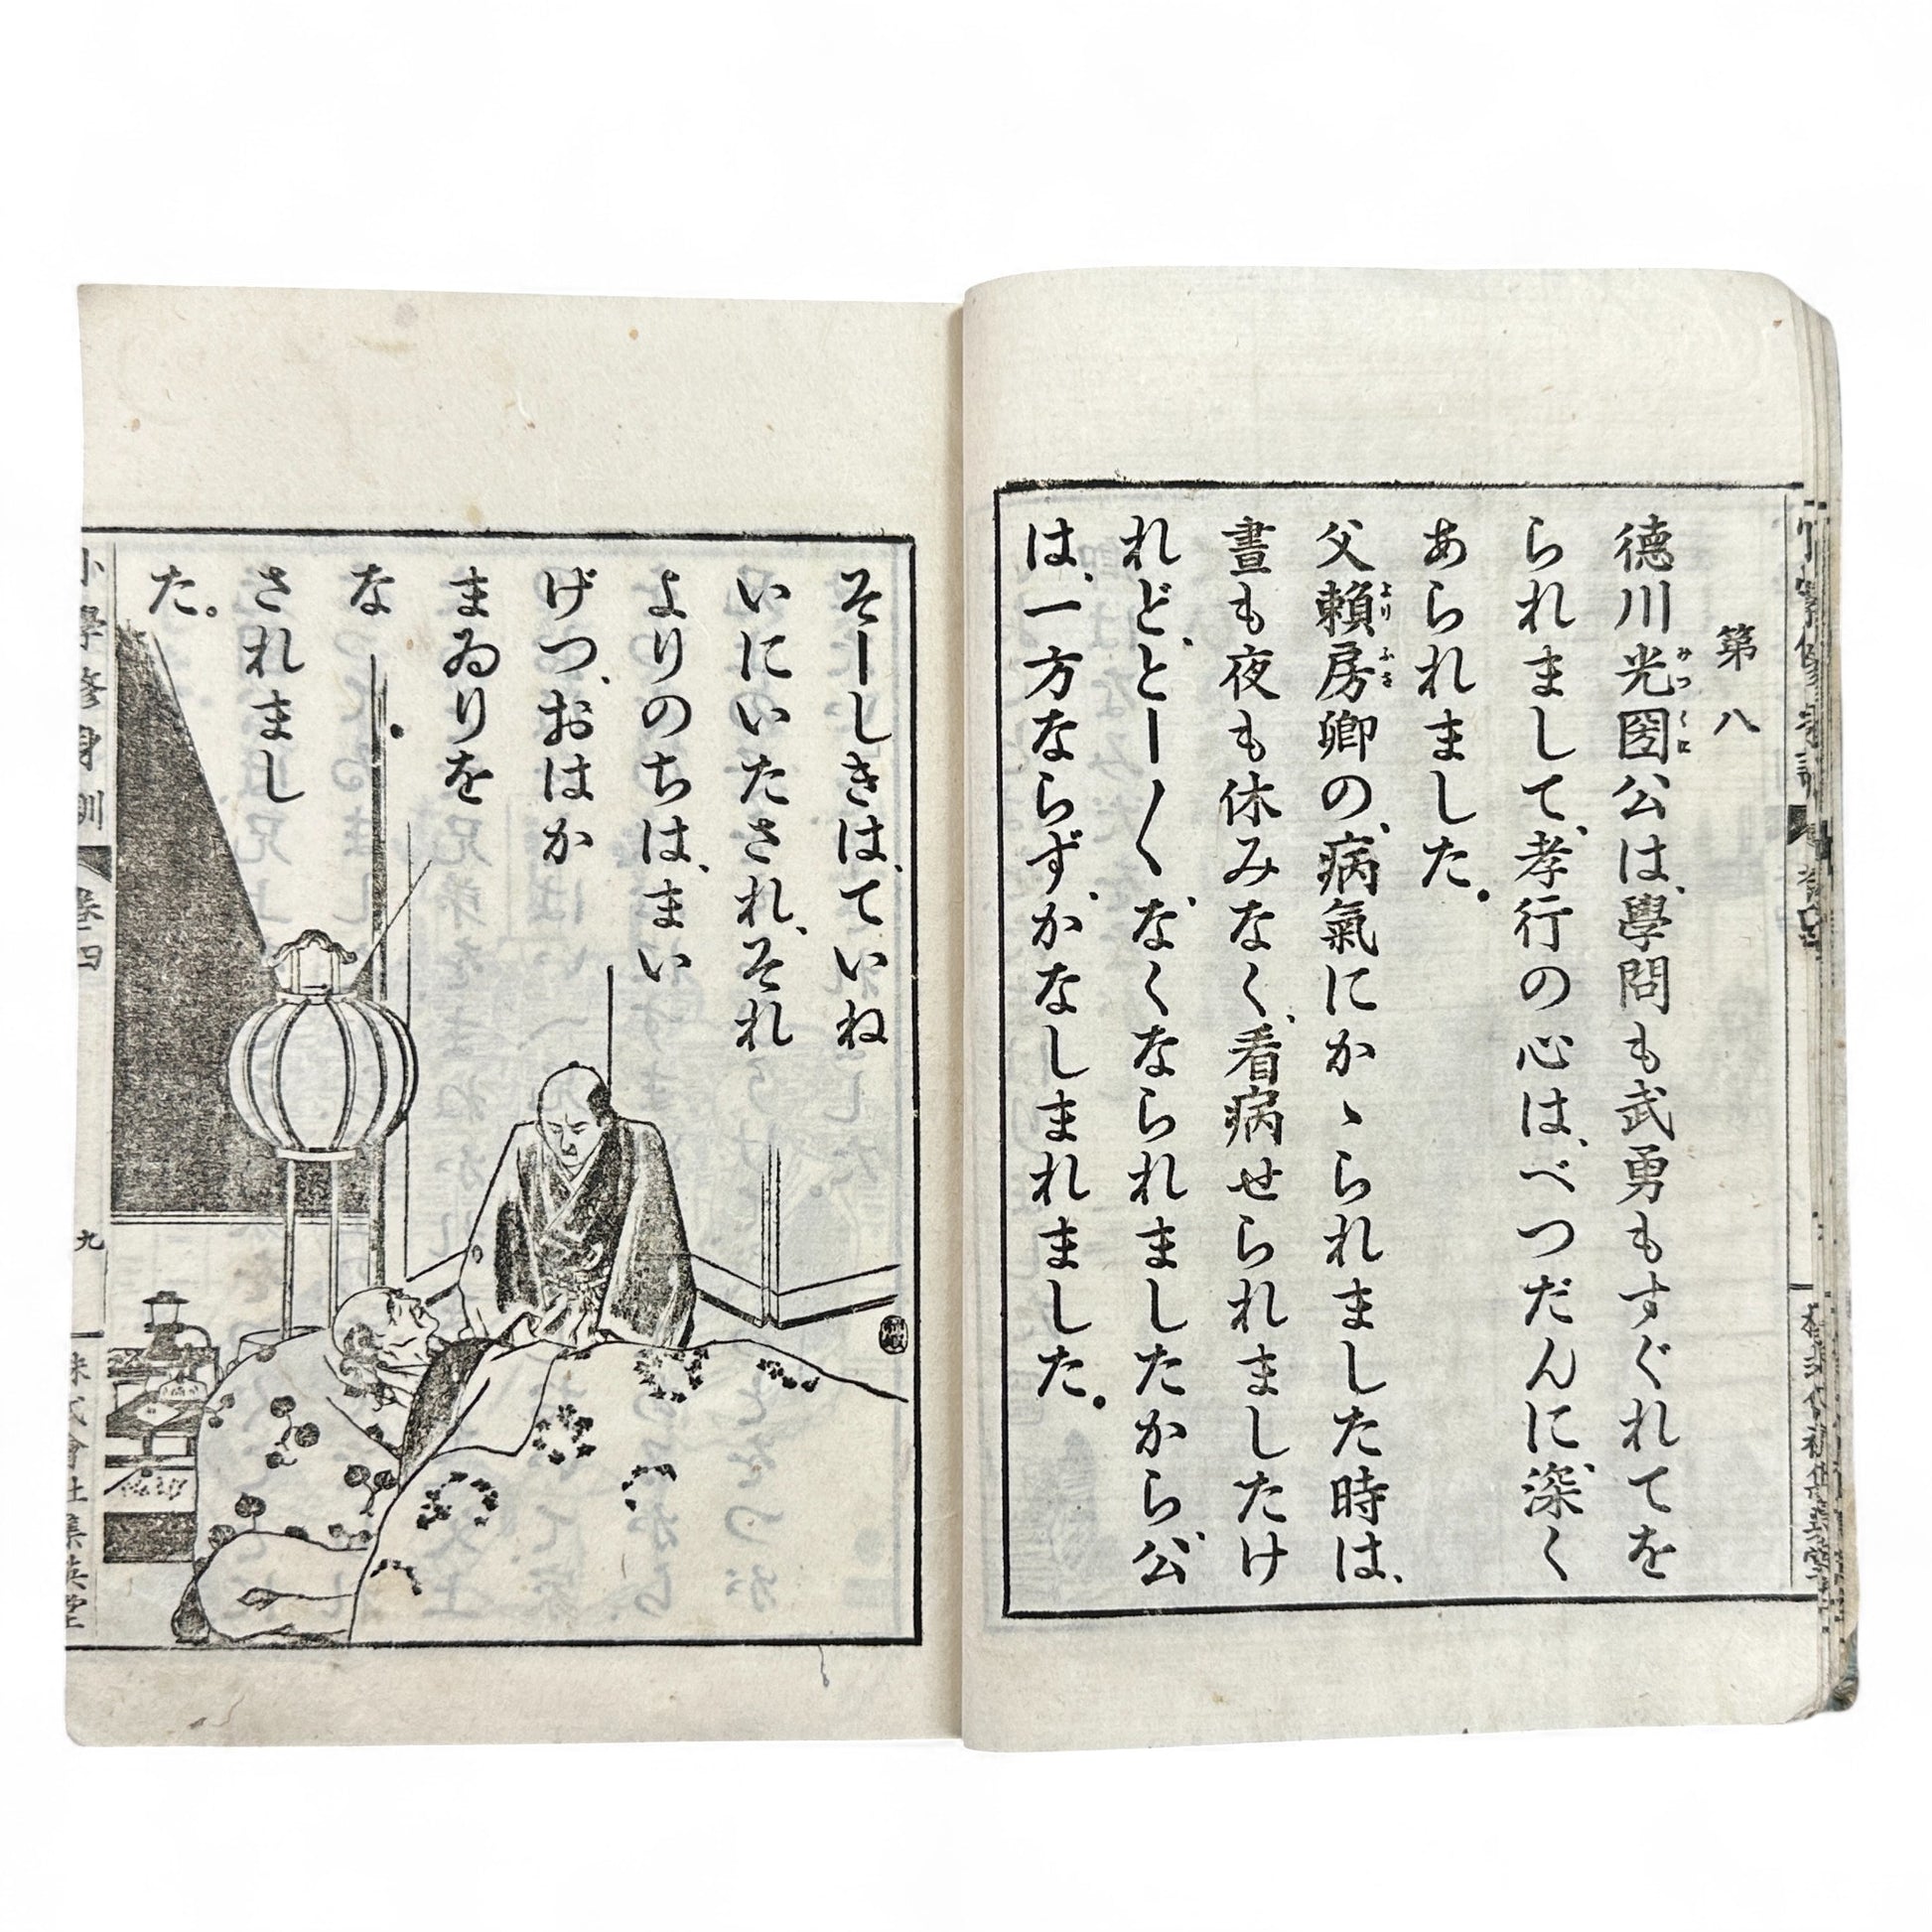 第八
徳川光圀公は、學問も武勇もすぐれてを
みつくに
られまして、孝行の心は、べつだんに、深く
あられました。
父頼房卿の、病氣にかゝられました時は、
よりふさ
晝も夜も休みなく、看病せられましたけ
れど、とー〳〵、なくなられましたから、公
は、一方ならず、かなしまれました。
そーしきは、ていね
いにいたされ、それ
よりのちは、まい
げつ、おはか
まゐりを
な
されまし
た。
小學修身訓
卷四
九
株式會社集英堂